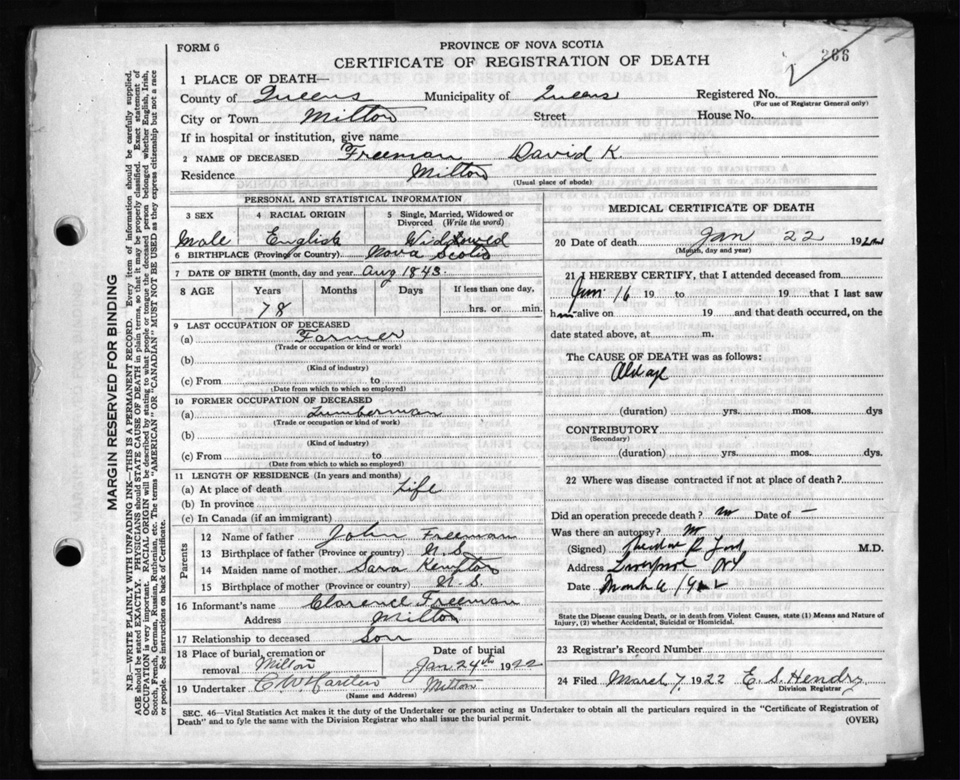 FORM 6
PROVINCE OF NOVA SCOTIA
CERTIFICATE OF REGISTRATION OF DEATH
266
1 PLACE OF DEATH—
County of Queens Municipality of Queens Registered No.
(For use of Registrar General only)
City or Town Milton Street House No.
If in hospital or institution, give name
2 NAME OF DECEASED Freeman David K.
Residence Milton
(Usual place of abode)
PERSONAL AND STATISTICAL INFORMATION
3 SEX 4 RACIAL ORIGIN 5 Single, Married, Widowed or Divorced (Write the word)
Male English Widowed
6 BIRTHPLACE (Province or Country) Nova Scotia
7 DATE OF BIRTH (month, day and year) Aug 1843
8 AGE Years Months Days If less than one day,
78 hrs. or min.
9 LAST OCCUPATION OF DECEASED
(a) Farmer
(Trade or occupation or kind or work)
(b)
(Kind of industry)
(c) From to
(Date from which to which so employed)
10 FORMER OCCUPATION OF DECEASED
(a) Lumberman
(Trade or occupation or kind of work)
(b)
(Kind of industry)
(c) From to
(Date from which to which so employed)
11 LENGTH OF RESIDENCE (In years and months)
(a) At place of death Life
(b) In province
(c) In Canada (if an immigrant)
Parents
12 Name of father John Freeman
13 Birthplace of father (Province or country) N.S.
14 Maiden name of mother Sara Kempton
15 Birthplace of mother (Province or country) N.S.
16 Informant's name Clarence Freeman
Address Milton
17 Relationship to deceased Son
18 Place of burial, cremation or removal Milton
Date of burial
Jan 24th 1922
19 Undertaker Milton
(Name and Address)
MEDICAL CERTIFICATE OF DEATH
20 Date of death Jan 22 192
(Month, day and year)
21 I HEREBY CERTIFY, that I attended deceased from
16 19 to 19 that I last saw
him alive on 19 and that death occurred, on the
date stated above, at m.
The CAUSE OF DEATH was as follows:
Old age
(duration) yrs. mos. dys
CONTRIBUTORY
(Secondary)
(duration) yrs. mos. dys.
22 Where was disease contracted if not at place of death?
Did an operation precede death? no Date of —
Was there an autopsy? no
(Signed) M.D.
Address Liverpool
Date March 6 1922
State the Disease causing Death, or in death from Violent Causes, state (1) Means and Nature of
Injury, (2) whether Accidental, Suicidal or Homicidal.
23 Registrar's Record Number
24 Filed March 7, 1922 E. S. Hendry
Division Registrar
SEC. 46—Vital Statistics Act makes it the duty of the Undertaker or person acting as Undertaker to obtain all the particulars required in the "Certificate of Registration of
Death" and to fyle the same with the Division Registrar who shall issue the burial permit.
(OVER)
MARGIN RESERVED FOR BINDING
N.B.—WRITE PLAINLY WITH UNFADING INK—THIS IS A PERMANENT RECORD. Every item of information should be carefully supplied.
AGE should be stated EXACTLY. PHYSICIANS should STATE CAUSE OF DEATH in plain terms, so that it may be properly classified. Exact statement of
OCCUPATION is very important. RACIAL ORIGIN will be described by stating to what people or tongue the deceased person belonged whether English, Irish,
Scotch, French, German, Russian, Ruthenian, etc. The terms "AMERICAN" OR "CANADIAN" MUST NOT BE USED as they express citizenship but not a race
or people. See instructions on back of Certificate.